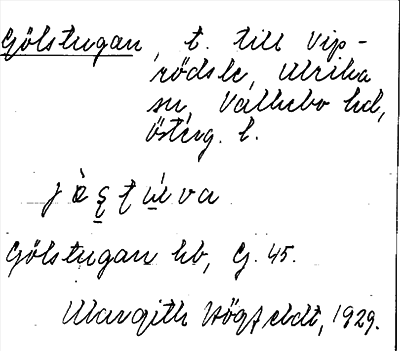 Gölstugan, t. till Vip-
rödsle, Ulrika
sn, Vallebo hd,
Österg. l.
Gölstugan hb, G. 45.
Margith Högfeldt, 1929.